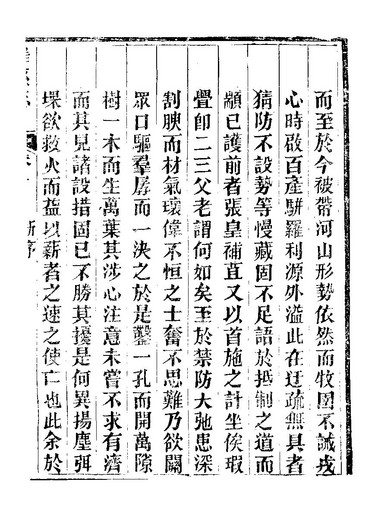 而至於今被帶河山形勢依然而牧圉不誡戎
心時啟百產駢羅利源外溢此在迂疏無具者
猜防不設勢等慢藏固不足語於抵制之道而
顓已護前者張皇補苴又以首施之計坐俟瑕
釁卽二三父老謂何如矣至於禁防大弛患深
割腴而材氣瓌偉不恒之士奮不思難乃欲關
眾口驅羣孱而一決之於是鑿一孔而開萬隙
樹一木而生萬葉其涉心注意未嘗不求有濟
而其見諸設措固已不勝其擾是何異揚塵弭
堁欲救火而益以薪者之速之使亡也此余於
新序